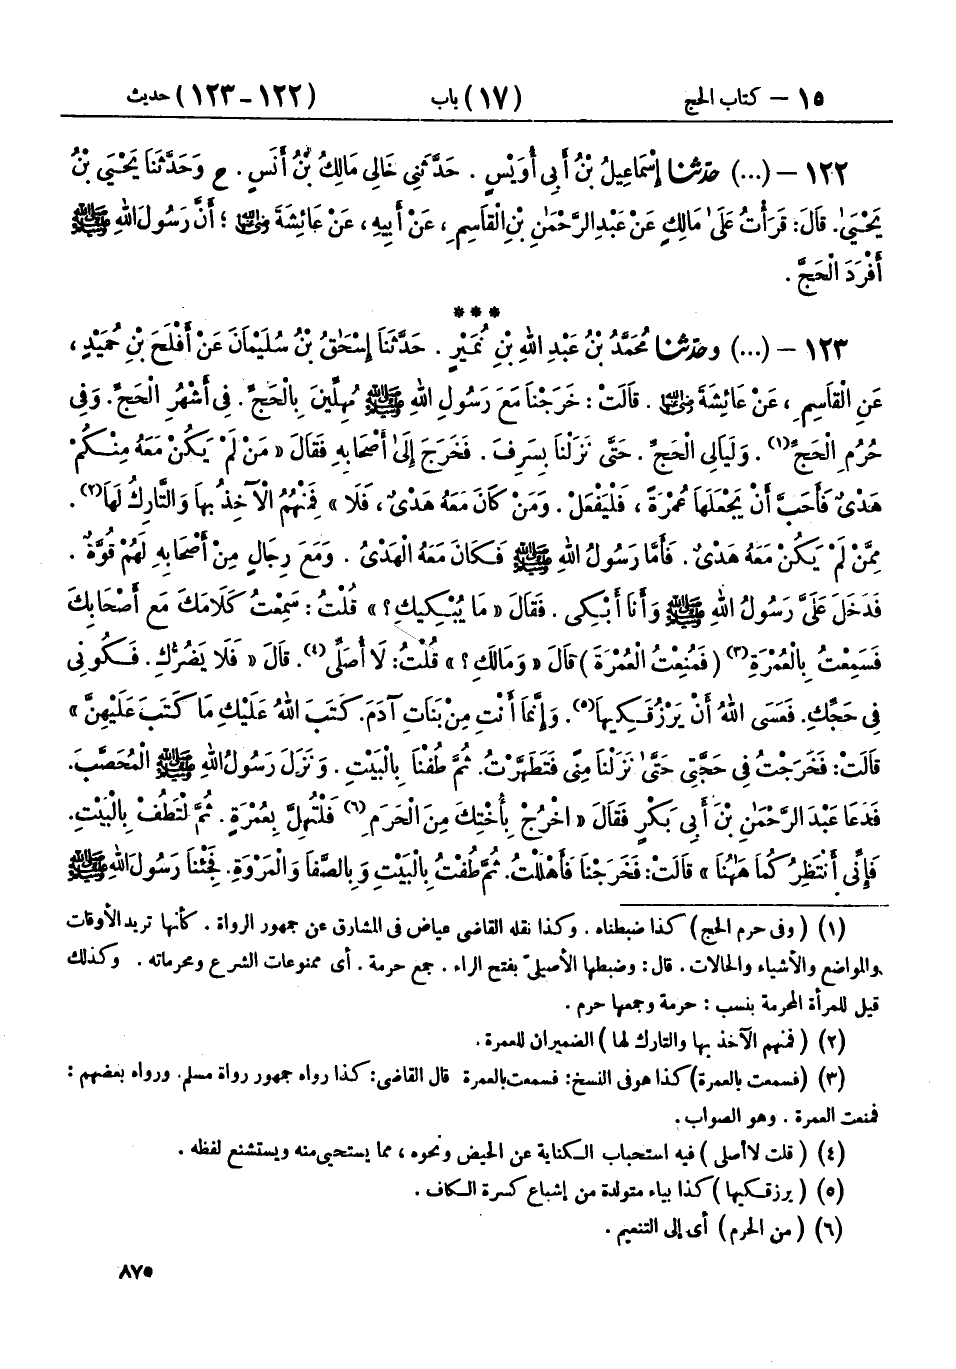 ١٥ – كتاب الحج (١٧) باب (١٢٢-١٢٣) حديث
١٢٢ – (...) حَدَّثَنَا إِسْمَاعِيلُ بْنُ أَبِي أُوَيْسٍ . حَدَّثَنِي خَالِي مَالِكُ بْنُ أَنَسٍ . ح وَحَدَّثَنَا يَحْيَى بْنُ
يَحْيَىٰ. قَالَ: قَرَأْتُ عَلَىٰ مَالِكٍ عَنْ عَبْدِ الرَّحْمَٰنِ بْنِ الْقَاسِمِ ، عَنْ أَبِيهِ ، عَنْ عَائِشَةَ رضي الله عنها ؛ أَنَّ رَسُولَ اللهِ ﷺ
أَفْرَدَ الْحَجَّ .
***
١٢٣ – (...) وحَدَّثَنَا مُحَمَّدُ بْنُ عَبْدِ اللهِ بْنِ نُمَيْرٍ . حَدَّثَنَا إِسْحَٰقُ بْنُ سُلَيْمَانَ عَنْ أَفْلَحَ بْنِ حُمَيْدٍ ،
عَنِ الْقَاسِمِ ، عَنْ عَائِشَةَ رضي الله عنها . قَالَتْ : خَرَجْنَا مَعَ رَسُولِ اللهِ ﷺ مُهِلِّينَ بِالْحَجِّ . فِي أَشْهُرِ الْحَجِّ . وَفِي
حُرُمِ الْحَجِّ(١) . وَلَيَالِي الْحَجِّ . حَتَّى نَزَلْنَا بِسَرِفَ . فَخَرَجَ إِلَىٰ أَصْحَابِهِ فَقَالَ « مَنْ لَمْ يَكُنْ مَعَهُ مِنْكُمْ
هَدْيٌ فَأَحَبَّ أَنْ يَجْعَلَهَا عُمْرَةً ، فَلْيَفْعَلْ . وَمَنْ كَانَ مَعَهُ هَدْيٌ ، فَلَا » فَمِنْهُمُ الْآخِذُ بِهَا وَالتَّارِكُ لَهَا(٢) .
مِمَّنْ لَمْ يَكُنْ مَعَهُ هَدْيٌ . فَأَمَّا رَسُولُ اللهِ ﷺ فَكَانَ مَعَهُ الْهَدْيُ . وَمَعَ رِجَالٍ مِنْ أَصْحَابِهِ لَهُمْ قُوَّةٌ .
فَدَخَلَ عَلَيَّ رَسُولُ اللهِ ﷺ وَأَنَا أَبْكِي . فَقَالَ « مَا يُبْكِيكِ ؟ » قُلْتُ : سَمِعْتُ كَلَامَكَ مَعَ أَصْحَابِكَ
فَسَمِعْتُ بِالْعُمْرَةِ(٣) ( فَمُنِعْتُ الْعُمْرَةَ ) قَالَ « وَمَالَكِ ؟ » قُلْتُ: لَا أُصَلِّي(٤). قَالَ « فَلَا يَضُرُّكِ. فَكُونِي
فِي حَجِّكِ. فَعَسَى اللهُ أَنْ يَرْزُقَكِيهَا(٥). وَإِنَّمَا أَنْتِ مِنْ بَنَاتِ آدَمَ. كَتَبَ اللهُ عَلَيْكِ مَا كَتَبَ عَلَيْهِنَّ »
قَالَتْ: فَخَرَجْتُ فِي حَجَّتِي حَتَّىٰ نَزَلْنَا مِنًى فَتَطَهَّرْتُ. ثُمَّ طُفْنَا بِالْبَيْتِ . وَنَزَلَ رَسُولُ اللهِ ﷺ الْمُحَصَّبَ.
فَدَعَا عَبْدَ الرَّحْمَٰنِ بْنَ أَبِي بَكْرٍ فَقَالَ « اخْرُجْ بِأُخْتِكَ مِنَ الْحَرَمِ(٦) فَلْتُهِلَّ بِعُمْرَةٍ. ثُمَّ لْتَطُفْ بِالْبَيْتِ.
فَإِنِّي أَنْتَظِرُكُمَا هَٰهُنَا » قَالَتْ: فَخَرَجْنَا فَأَهْلَلْتُ. ثُمَّ طُفْتُ بِالْبَيْتِ وَبِالصَّفَا وَالْمَرْوَةِ. فَجِئْنَا رَسُولَ اللهِ ﷺ
(١) ( وفى حرم الحج ) كذا ضبطناه . وكذا نقله القاضى عياض فى المشارق عن جمهور الرواة . كأنها تريد الأوقات
والمواضع والأشياء والحالات . قال : وضبطها الأصيلىّ بفتح الراء . جمع حرمة . أى ممنوعات الشرع ومحرماته . وكذلك
قيل للمرأة المحرمة بنسب : حرمة وجمعها حرم .
(٢) ( فمنهم الآخذ بها والتارك لها ) الضميران للعمرة .
(٣) (فسمعت بالعمرة) كذا هو فى النسخ: فسمعت بالعمرة قال القاضى: كذا رواه جمهور رواة مسلم. ورواه بعضهم :
فمنعت العمرة . وهو الصواب .
(٤) ( قلت لا أصلى ) فيه استحباب الكناية عن الحيض ونحوه ، مما يستحيى منه ويستشنع لفظه .
(٥) ( يرزقكيها ) كذا بياء متولدة من إشباع كسرة الكاف .
(٦) ( من الحرم ) أى إلى التنعيم .
٨٧٥